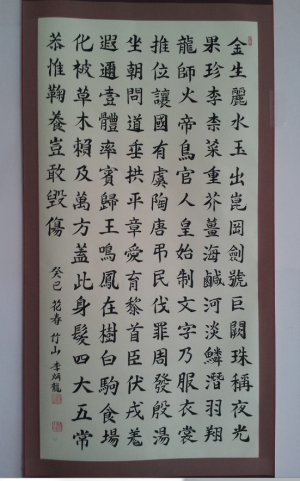 金生麗水玉出崑岡劍號巨闕珠稱夜光
果珍李柰菜重芥薑海鹹河淡鱗潛羽翔
龍師火帝鳥官人皇始制文字乃服衣裳
推位讓國有虞陶唐弔民伐罪周發殷湯
坐朝問道垂拱平章愛育黎首臣伏戎羌
遐邇壹體率賓歸王鳴鳳在樹白駒食場
化被草木賴及萬方蓋此身髮四大五常
恭惟鞠養豈敢毀傷
癸巳花春竹山李炳龍